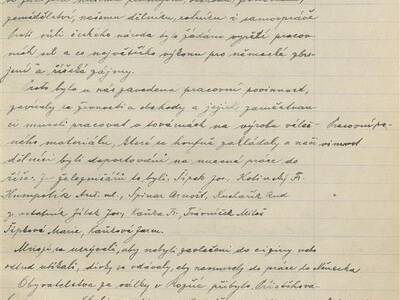 zemědělství, našemu dělníku, rolníku i samosprávě
Proti vůli českého národa bylo žádáno vypětí pracov-
ních sil a co největšího výkonu pro německé zbro-
jení a říšské zájmy.
Proto byla u nás zavedena pracovní povinnost,
zavíraly se živnosti a obchody a jejich zaměstnan-
ci museli pracovat v továrnách na výrobu váleč- Pracovní po-
ného materiálu, které se houfně zakládaly a naši vinnost
dělníci byli deportováni na nucené práce do
říše. Ze železničářů to byli: Šípek Jos. Kotinský Fr.
Humpolík Ant. ml., Spinar Arnošt, Kuchařík Rud
z ostatních Jílek Jan, Kaňka Fr, Trávníček Miloš
Šípková Marie, Kaňková Jarm.
Mnozí se ukrývali, aby nebyli zavlečeni do ciziny nebo
odtud utíkali, dívky se vdávaly, aby nemusely do práce do Německa
Obyvatelstva za války v Rozné přibylo.